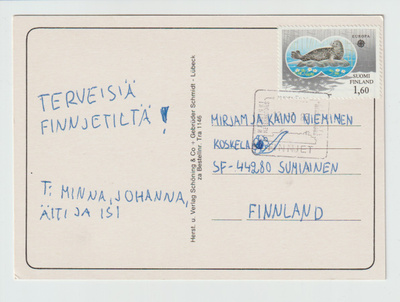 TERVEISIÄ
FINNJETILTÄ!
T: MINNA, JOHANNA,
ÄITI JA ISI
Herst. u. Verlag Schöning & Co + Gebrüder Schmidt - Lübeck
za Bestellnr. Tra 1146
EUROPA
SUOMI
FINLAND
1,60
MIRJAM JA KAINO NIEMINEN
KOSKELA
SF-44280 SUMIAINEN
FINNLAND